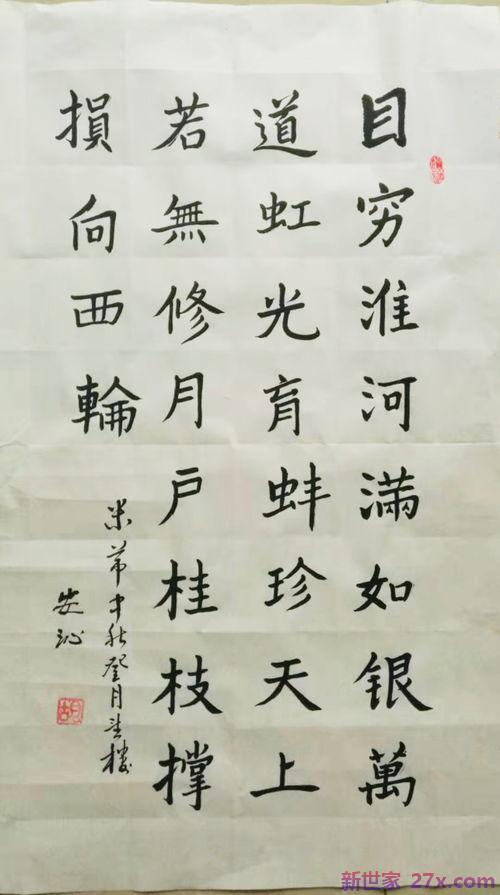 目穷淮河滿如银萬
道虹光育蚌珍天上
若無修月户桂枝撑
損向西輪
米芾中秋登月望楼
安沁
新世家 27x.com